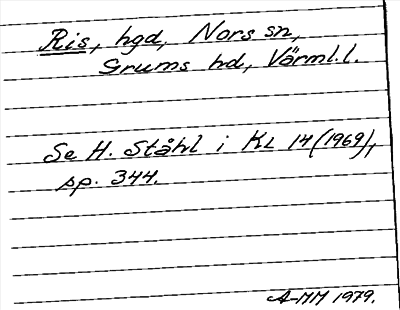 Ris, hgd, Nors sn,
Grums hd, Värml.l.
Se H. Ståhl i KL 14 (1969),
sp. 344.
A-MM 1979.